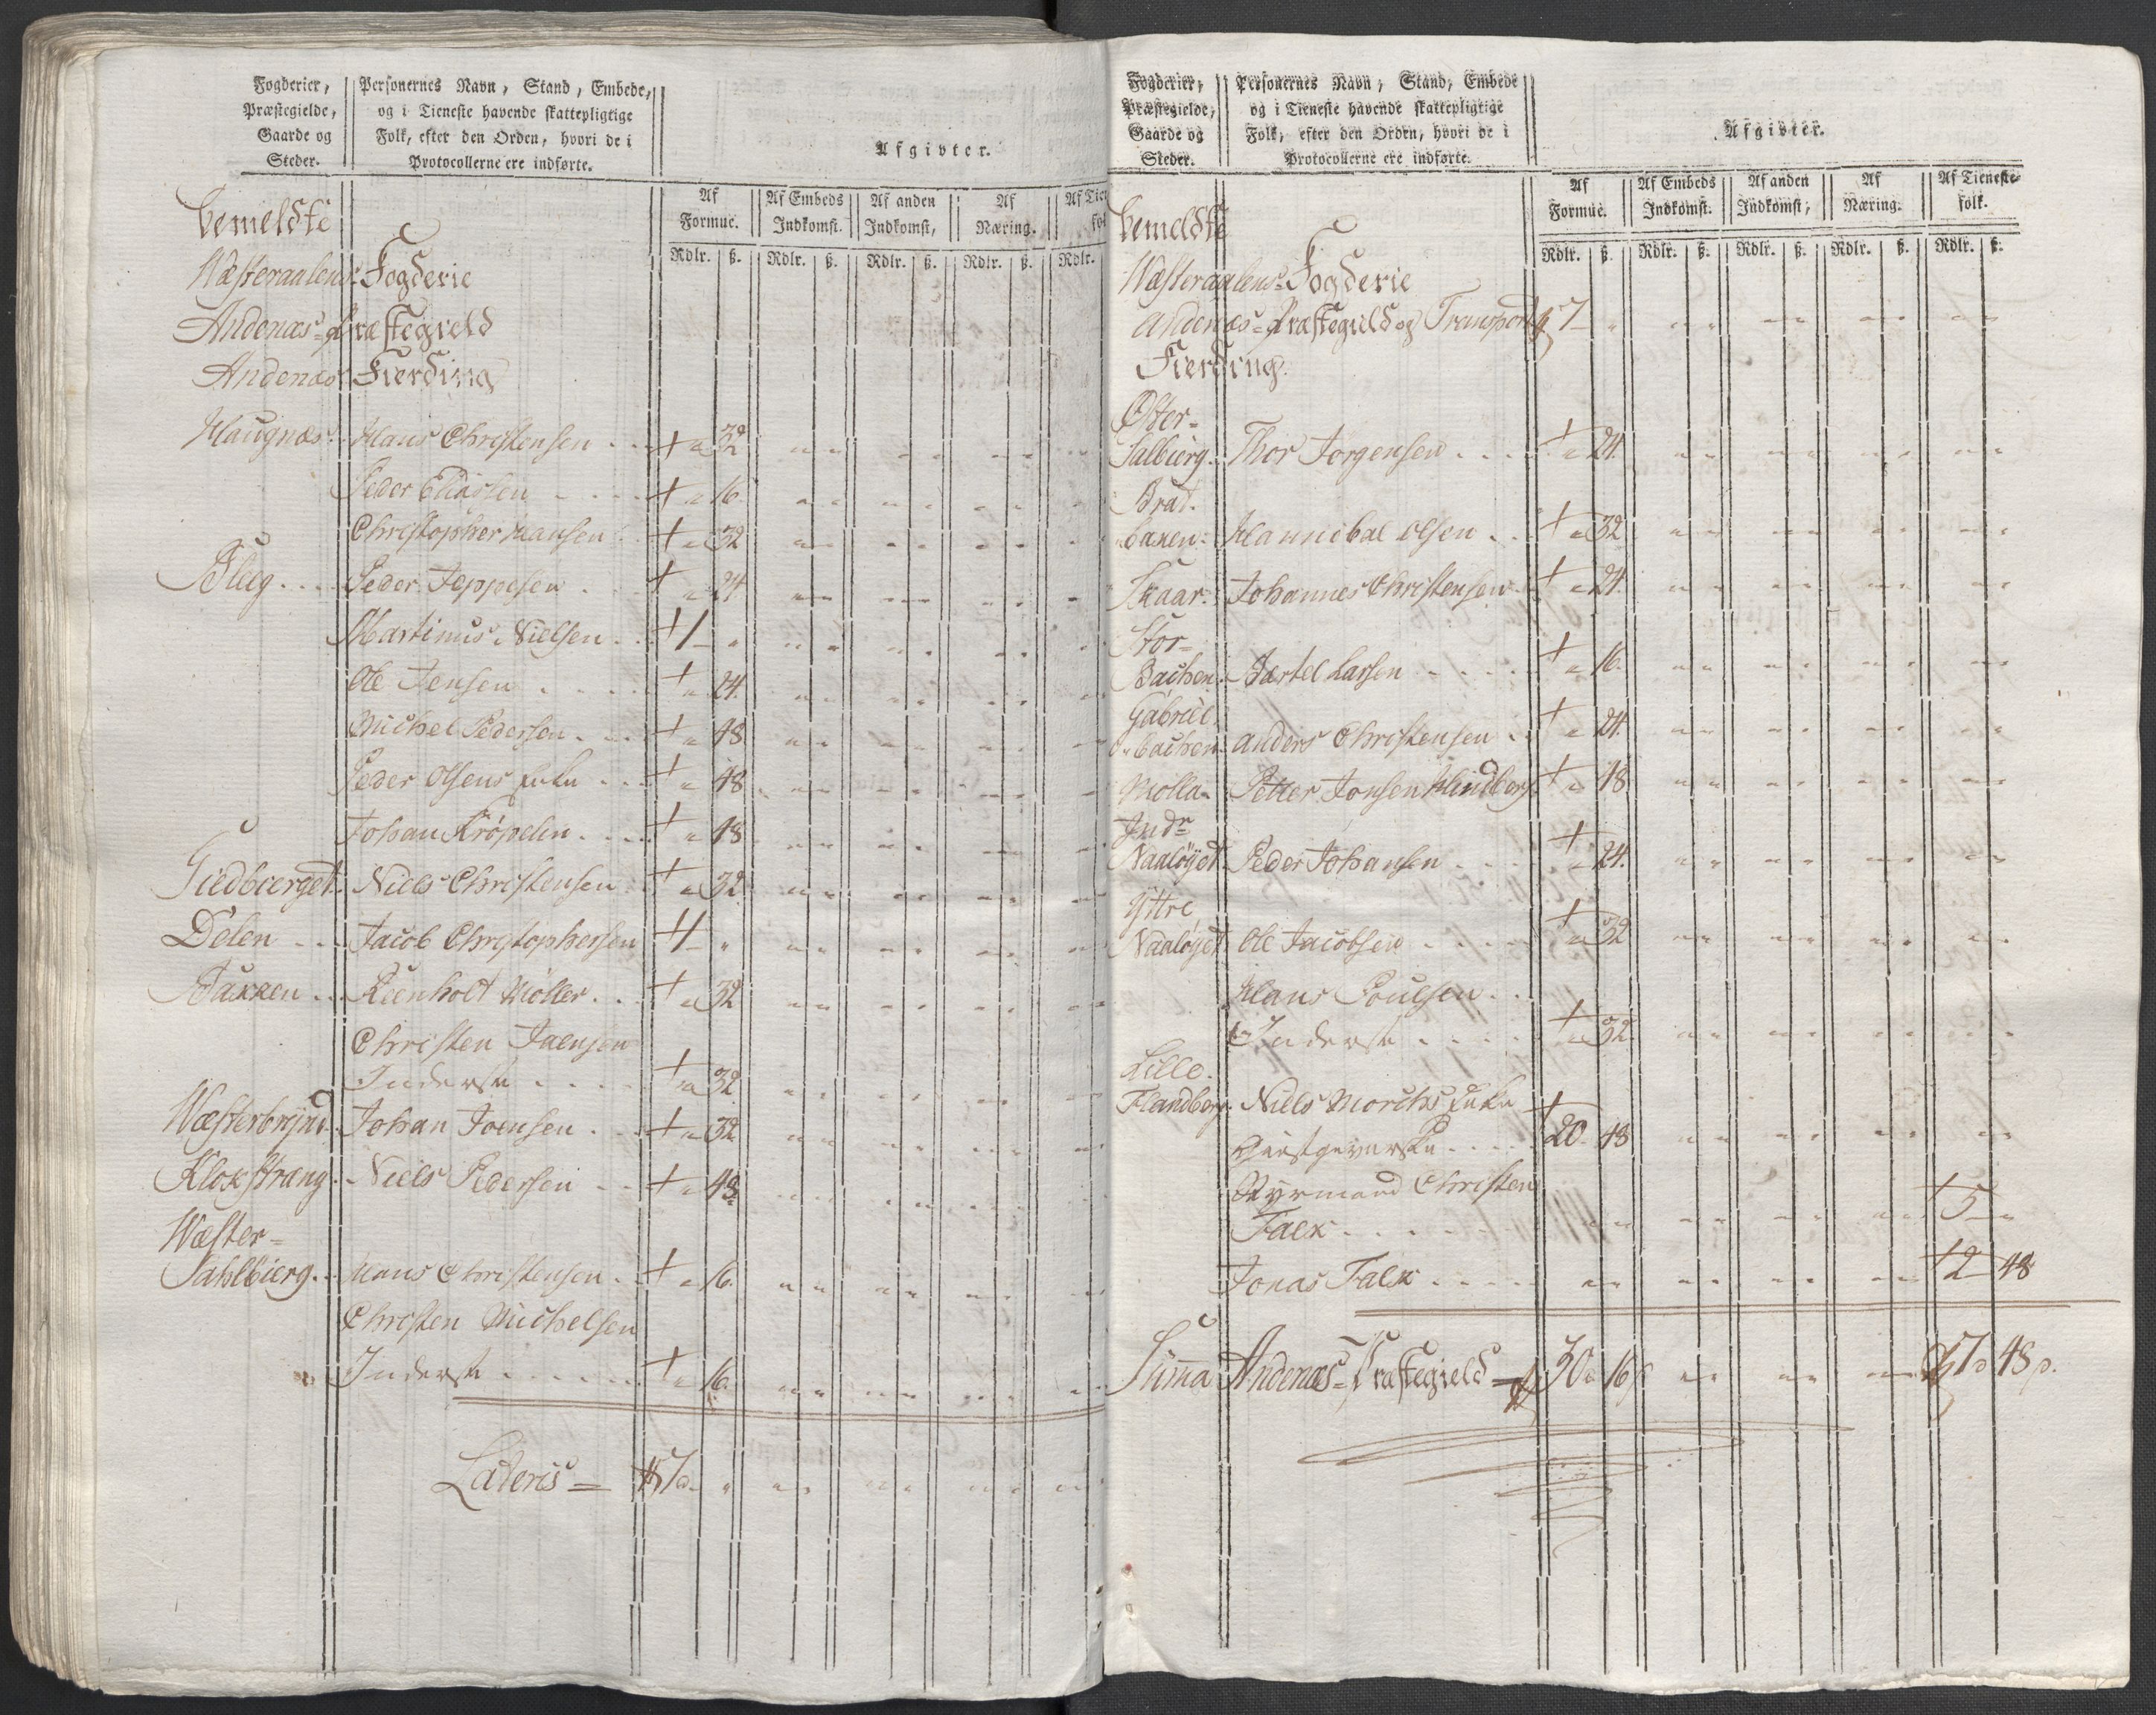 Fogderier, Præstegielde, Gaarde og Steder.
Personernes Navn, Stand, Embede, og i Tieneste havende skattepligtige Folk, efter den Orden, hvori de i Protocollerne ere indførte.
Afgivter.
Af Formue. Af Embeds Indkomst. Af anden Indkomst, Af Næring.
Rdlr. ß. Rdlr. ß. Rdlr. ß. Rdlr. ß. Rdlr.
bemeldte
Wæsteraalens Fogderie
Andenæs Præstegield
Andenæs Fierding
Haugnæs. Hans Christensen . . + " 32
Peder Eliassen . . . + " 16.
Christopher Hansen + " 32
Bleg . . . Peder Jeppesen . . + " 24
Martinus Nielsen . . + 1 - "
Ole Jensen . . . . + " 24.
Michel Pedersen . . . + " 48
Peder Olsens Enke . . + " 48
Johan Kröpelin . . . + " 48
Niels Christensen + " 32
Delen . . . Jacob Christophersen + 1 - "
Bakken . . Reenholt Möller . . + " 32
Christen Jaensen
Inderst . . . . + " 32
Johan Joensen . . + " 32
Klokstrang. Niels Pedersen . . + " 48
Wæster=
Sahlbierg. . Hans Christensen . . + " 16.
Christen Michelsen
Inderst . . . . . . + " 16.
Lateris = 7 "
Fogderier, Præstegielde, Gaarde og Steder.
Personernes Navn, Stand, Embede og i Tieneste havende skattepligtige Folk, efter den Orden, hvori de i Protocollerne ere indførte.
Afgivter.
Af Formue. Af Embeds Indkomst. Af anden Indkomst, Af Næring. Af Tieneste-folk.
Rdlr. ß. Rdlr. ß. Rdlr. ß. Rdlr. ß. Rdlr. ß.
bemeldte
Wæsteraalens Fogderie
Andenæs Præstegield og Transport 7 - "
Fierding.
Öster=
Salbierg. Thor Jorgensen . . . + " 24.
Brat.
bakken: Hannibal Olsen . . + " 32
Skaar. Johannes Christensen. + " 24.
Stor=
Bachen. Bærtel Larsen . . . . + " 16.
Gabriel
bachen Anders Christensen . . + " 24.
Molla. Petter Jonsen Hlindberg + " 48
Indr
Naalöyet Peder Johansen . . . + " 24.
Yttre
Naalöyet Ole Jacobsen . . . . + " 32
Hans Poulsen . .
Inderst . . . . + " 32
Lille.
Flandborg. Niels Morchs Enke
Giestgeverske . . . + 20. 48
Styrmand Christen
Falk . . . . . . + 5 - "
Jonas Falk . . . . + 2 - 48
Summa Andenæs Præstegield = 30 " 16 ß 7 " 48 ß.